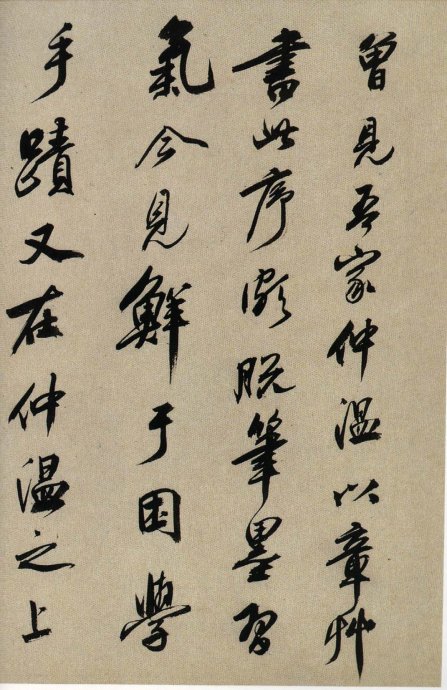 曾見吾家仲溫以章艸
書此序頗脫筆墨習
氣今見鮮于困學
手蹟又在仲溫之上